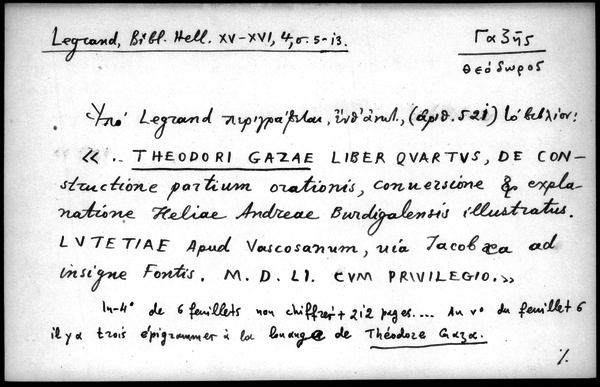 Legrand, Bibl. Hell. XV-XVI, 4, σ. 5-13.
Γαζῆς
Θεόδωρος
Ὑπό Legrand περιγράφεται, ἔνθ' ἀνωτ., (ἀριθ. 521) τό βιβλίον:
« .. THEODORI GAZAE LIBER QVARTVS, DE CON-
structione partium orationis, conuersione & expla-
natione Heliae Andreae Burdigalensis illustratus.
LVTETIAE Apud Vascosanum, uia Iacobæa ad
insigne Fontis. M. D. LI. CVM PRIVILEGIO.»
In-4° de 6 feuillets non chiffrés + 212 pages.... Au v° du feuillet 6
il y a trois épigrammes à la louange de Théodore Gaza.